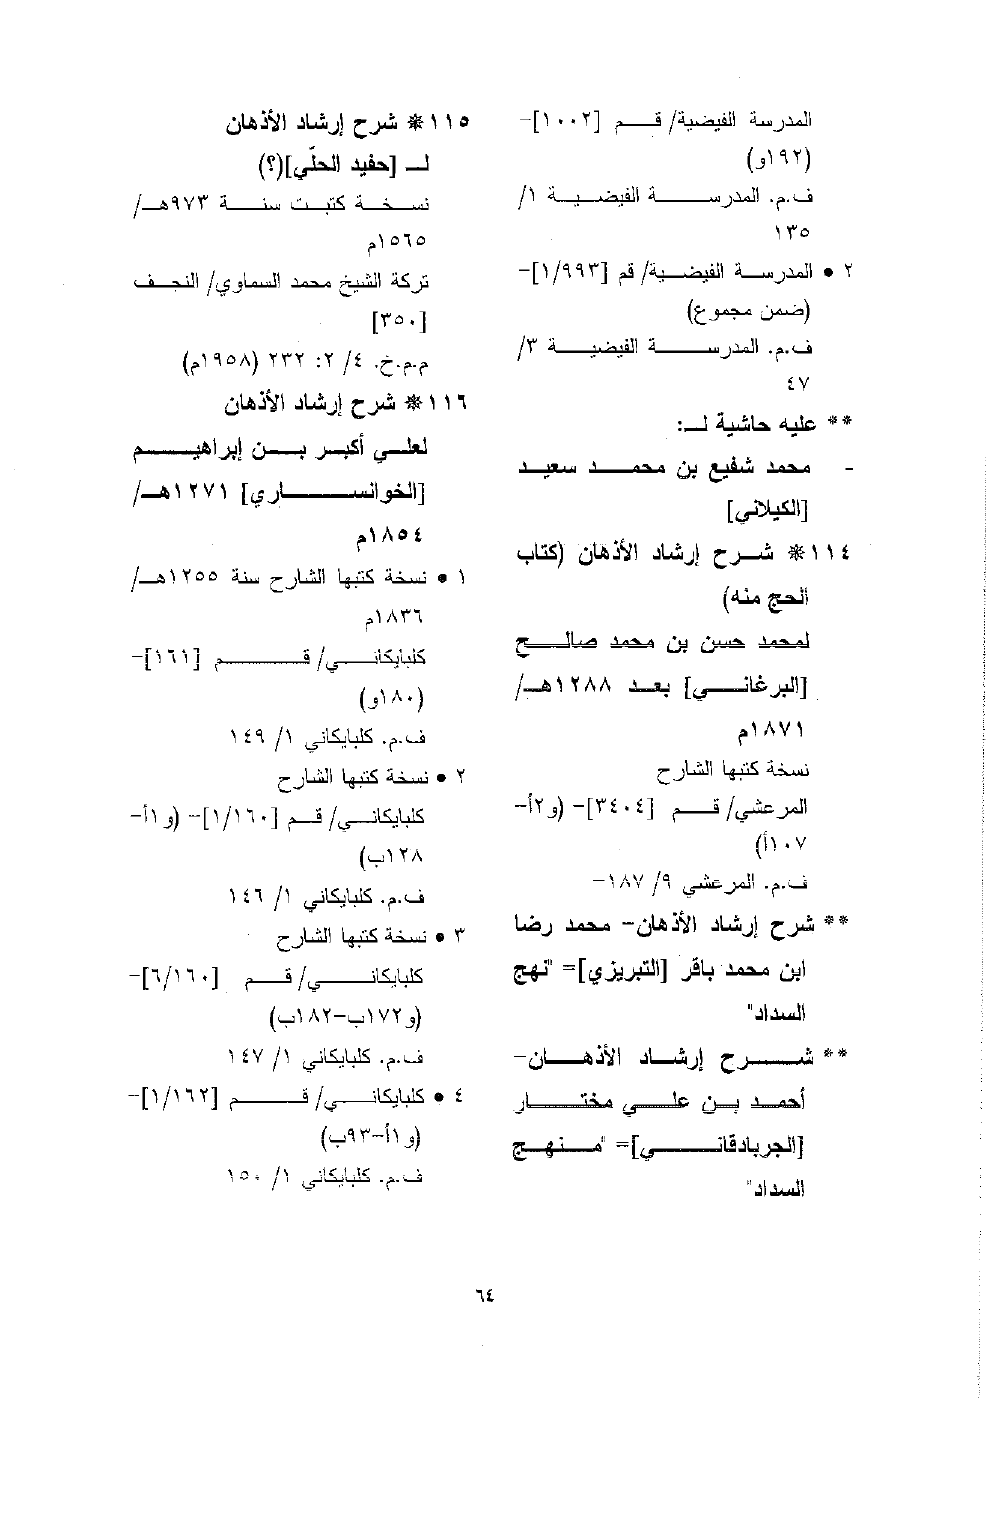 المدرسة الفيضية/ قم [١٠٠٢]-
(١٩٢و)
ف.م. المدرسة الفيضية ١/
١٣٥
٢ • المدرسة الفيضية/ قم [١/٩٩٣]-
(ضمن مجموع)
ف.م. المدرسة الفيضية ٣/
٤٧
** عليه حاشية لـ:
- محمد شفيع بن محمد سعيد
[الكيلاني]
١١٤* شرح إرشاد الأذهان (كتاب
الحج منه)
لمحمد حسن بن محمد صالح
[البرغاني] بعد ١٢٨٨هـ/
١٨٧١م
نسخة كتبها الشارح
المرعشي/ قم [٣٤٠٤]- (و٢أ-
١٠٧أ)
ف.م. المرعشي ٩/ ١٨٧-
** شرح إرشاد الأذهان- محمد رضا
ابن محمد باقر [التبريزي]= "نهج
السداد"
** شرح إرشاد الأذهان-
أحمد بن علي مختار
[الجربادقاني]= "منهج
السداد"
١١٥* شرح إرشاد الأذهان
لـ [حفيد الحلّي](؟)
نسخة كتبت سنة ٩٧٣هـ/
١٥٦٥م
تركة الشيخ محمد السماوي/ النجف
[٣٥٠]
م.م.خ. ٤/ ٢: ٢٣٢ (١٩٥٨م)
١١٦* شرح إرشاد الأذهان
لعلي أكبر بن إبراهيم
[الخوانساري] ١٢٧١هـ/
١٨٥٤م
١ • نسخة كتبها الشارح سنة ١٢٥٥هـ/
١٨٣٦م
كلبايكاني/ قم [١٦١]-
(١٨٠و)
ف.م. كلبايكاني ١/ ١٤٩
٢ • نسخة كتبها الشارح
كلبايكاني/ قم [١/١٦٠]- (و١أ-
١٢٨ب)
ف.م. كلبايكاني ١/ ١٤٦
٣ • نسخة كتبها الشارح
كلبايكاني/ قم [٦/١٦٠]-
(و١٧٢ب-١٨٢ب)
ف.م. كلبايكاني ١/ ١٤٧
٤ • كلبايكاني/ قم [١/١٦٢]-
(و١أ-٩٣ب)
ف.م. كلبايكاني ١/ ١٥٠
٦٤